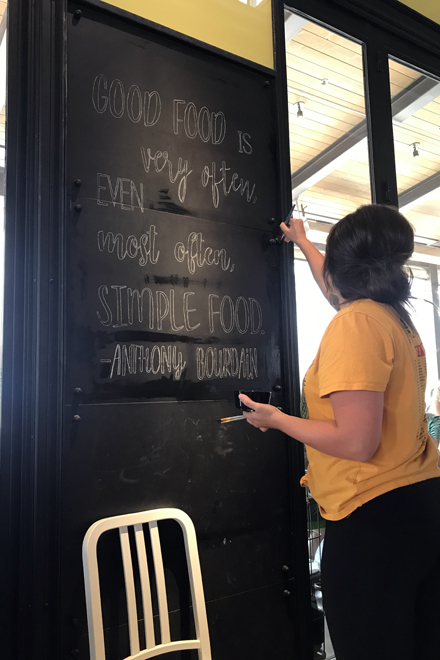 GOOD FOOD IS
very often,
EVEN
most often,
SIMPLE FOOD.
-ANTHONY BOURDAIN